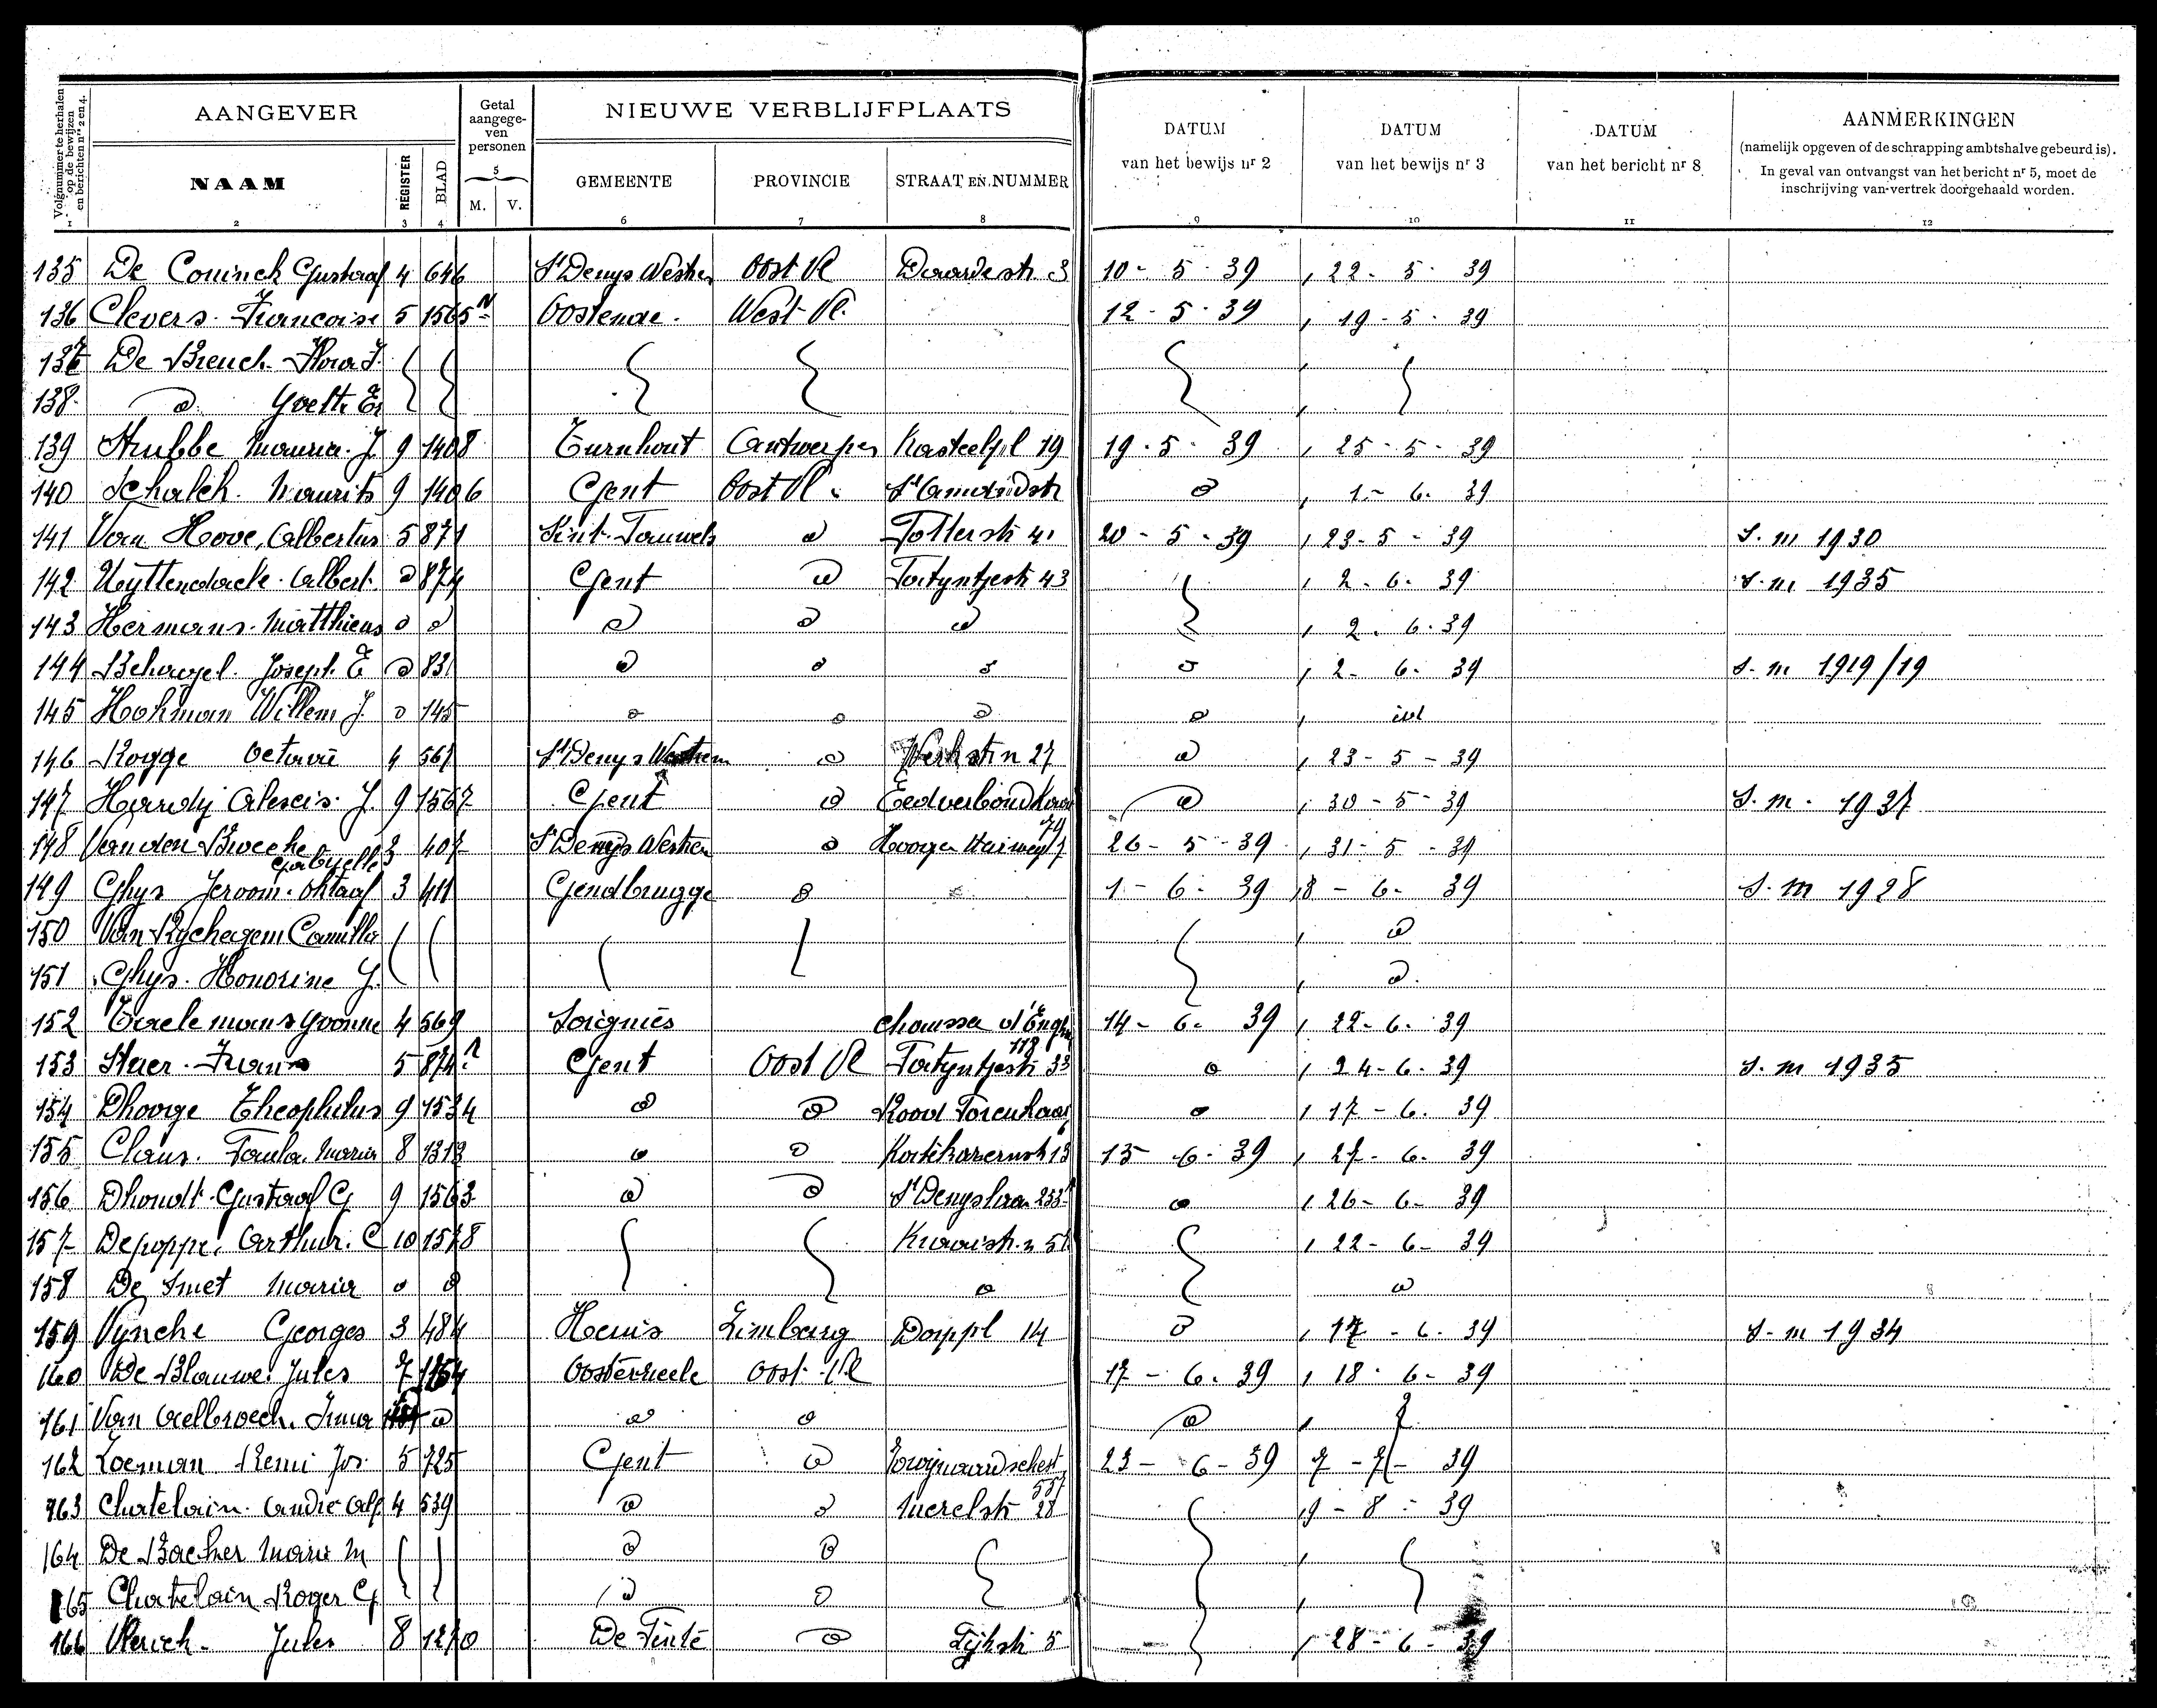 Volgnummer te herhalen op de bewijzen en berichten nrs 2 en 4.
AANGEVER
Getal aangegeven personen
NIEUWE VERBLIJFPLAATS
DATUM van het bewijs nr 2
DATUM van het bewijs nr 3
DATUM van het bericht nr 8
AANMERKINGEN
(namelijk opgeven of de schrapping ambtshalve gebeurd is).
In geval van ontvangst van het bericht nr 5, moet de
inschrijving van vertrek doorgehaald worden.
NAAM REGISTER BLAD 5 M. V. GEMEENTE PROVINCIE STRAAT EN NUMMER
1 2 3 4 6 7 8 9 10 11 12
135 De Coninck Gustaaf 4 646 St Denys Westrem Oost Vl 3 10-5-39 22-5-39
136 Clevers Francoise 5 1565 Oostende West-Vl. 12-5-39 19-5-39
137 De Breuck Flora J.
138 d Yvette
139 Strubbe Maurice J. 9 1408 Turnhout Antwerpen Kasteelpl 19 19-5-39 25-5-39
140 Schalck Maurits 9 1406 Gent Oost Vl. St Amandstr d 1-6-39
141 Van Hove, Albertus 5 871 d Potterstr 41 20-5-39 23-5-39 S.m 1930
142 Uyttendaele Albert d 874 Gent d Patyntjestr 43 2-6-39 S.m 1935
143 Hermans Matthieus d d d d d 2-6-39
144 Behagel Joseph E d 831 d d d d 2-6-39 S.m 1919/19
145 Hohman Willem J. d 145 d d d d id
146 Rogge Octavie 4 567 St Denys Westrem d 27 d 23-5-39
147 Hardy Alexis J. 9 1567 Gent d Eedverbondkaai d 30-5-39 S.m. 1937
74
148 Van den Broecke Gabrielle 3 407 St Denys Westrem d Hooge Kaiweg 7 26-5-39 31-5-39
149 Ghys Jeroom Oktaaf 3 411 Gendbrugge d 1-6-39 8-6-39 S.m 1928
150 Van Rychegem Camilla d
151 Ghys Honorine J. d
152 Taelemans Yvonne 4 569 Soignies chaussee d'Enghien 14-6-39 22-6-39
118
153 Staer Frans 5 874 Gent Oost Vl Patyntjestr 33 d 24-6-39 S.m 1935
154 Dhooge Theophilus 9 1534 d d d 17-6-39
155 Claus Paula Maria 8 1313 d d 13 13-6-39 27-6-39
156 Dhondt Gustaaf G 9 1563 d d St Denyslaan 233 d 26-6-39
157 Depoppe Arthur C 10 1578 22-6-39
158 De Smet Maria d d d d
159 Vyncke Georges 3 484 Henis Limburg Dorppl 14 d 17-6-39 S.m 1934
160 De Blauwe Jules 7 Oosterzeele Oost-Vl 17-6-39 18-6-39
161 Van Aelbroeck Irma d d d d
162 Loeman Remi Jos. 5 725 Gent d Zwijnaardschestr 23-6-39 7-7-39
557
163 Chatelain André Alf 4 539 d d Merelstr 28 9-8-39
164 De Backer Marie M d d
165 Chatelain Roger G d d
166 Vlerick Jules 8 1270 De Pinte d 5 28-6-39